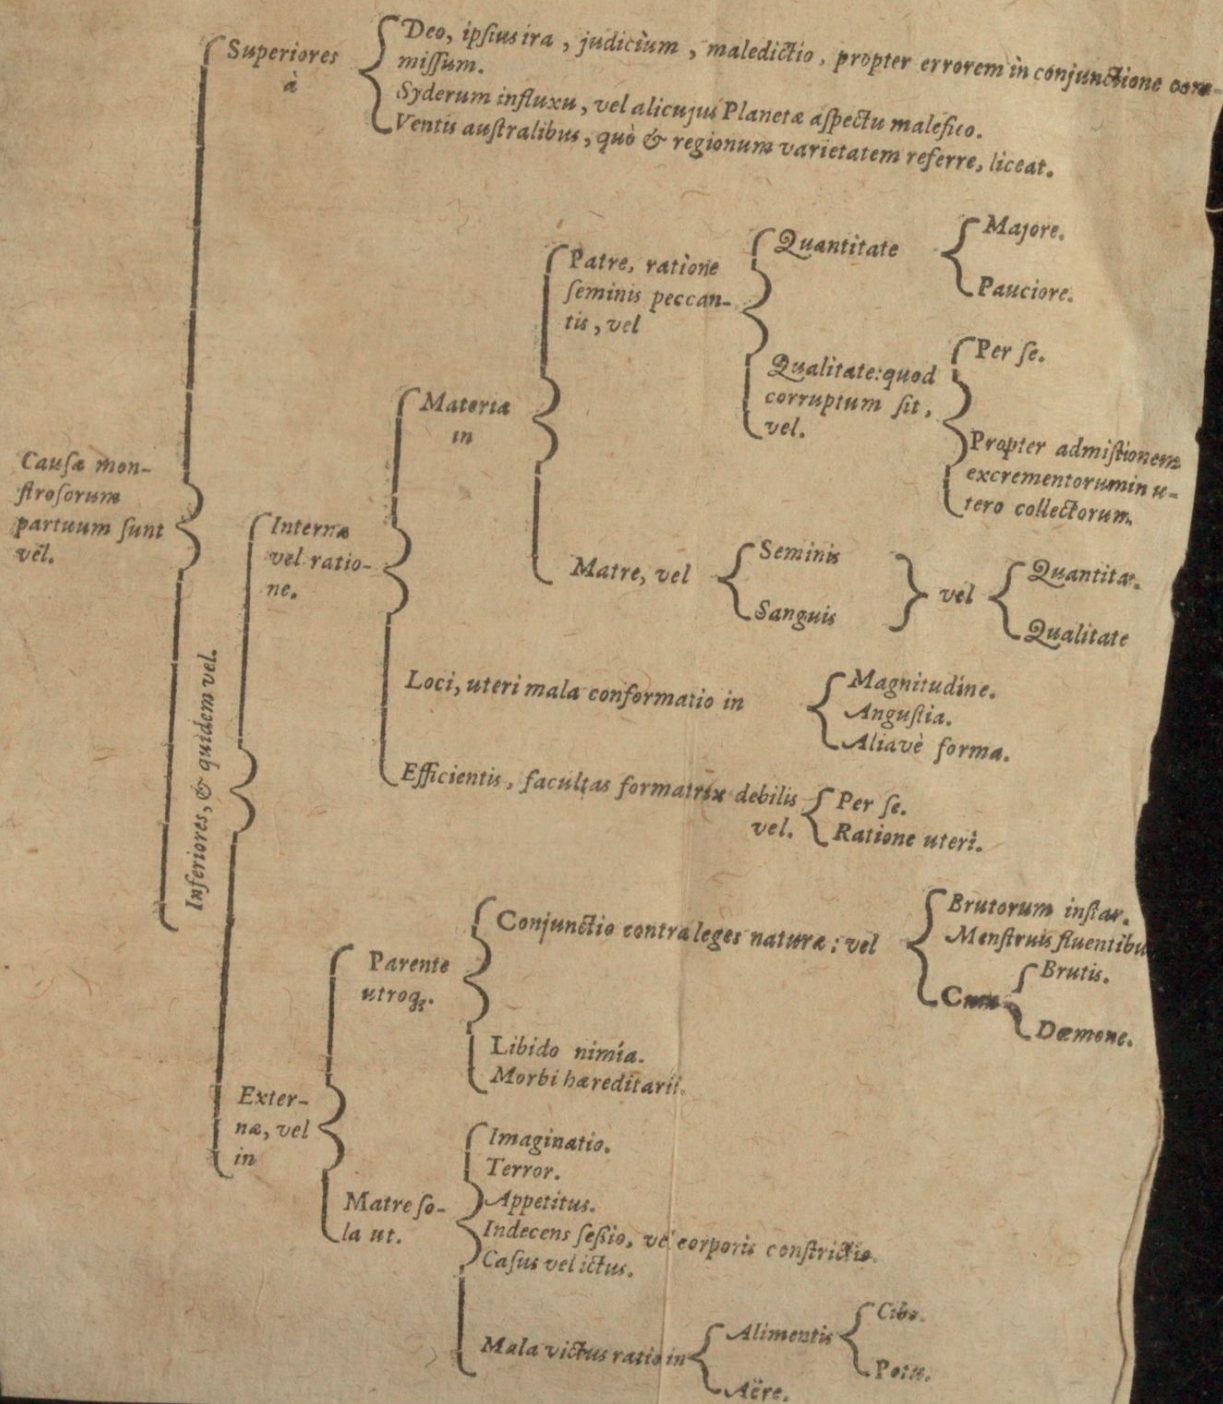 Superiores
à
Deo, ipſius ira, judicium, maledictio, propter errorem in conjunctione com-
miſſum.
Syderum influxu, vel alicujus Planetæ aſpectu malefico.
Ventis auſtralibus, quò & regionum varietatem referre, liceat.
Cauſæ mon-
ſtroſorum
partuum ſunt
vel.
Inferiores, & quidem vel.
Internæ
vel ratio-
ne.
Materiæ
in
Patre, ratione
ſeminis peccan-
tis, vel
Quantitate
Majore.
Pauciore.
Qualitate: quod
corruptum ſit,
vel.
Per ſe.
Propter admiſtionem
excrementorum in u-
tero collectorum.
Matre, vel
Seminis
Sanguis
vel
Quantitæ.
Qualitate
Loci, uteri mala conformatio in
Magnitudine.
Anguſtia.
Aliavè forma.
Efficientis, facultas formatrix debilis
vel.
Per ſe.
Ratione uteri.
Exter-
næ, vel
in
Parente
utroq;.
Conjunctio contra leges naturæ: vel
Brutorum inſtar.
Menſtruis fluentibu
Cum
Brutis.
Dæmone.
Libido nimia.
Morbi hæreditarii.
Matre ſo-
la ut.
Imaginatio.
Terror.
Appetitus.
Indecens ſeſsio, vel corporis conſtrictio.
Caſus vel ictus.
Mala victus ratio in
Alimentis
Cibo.
Potu.
Aëre.